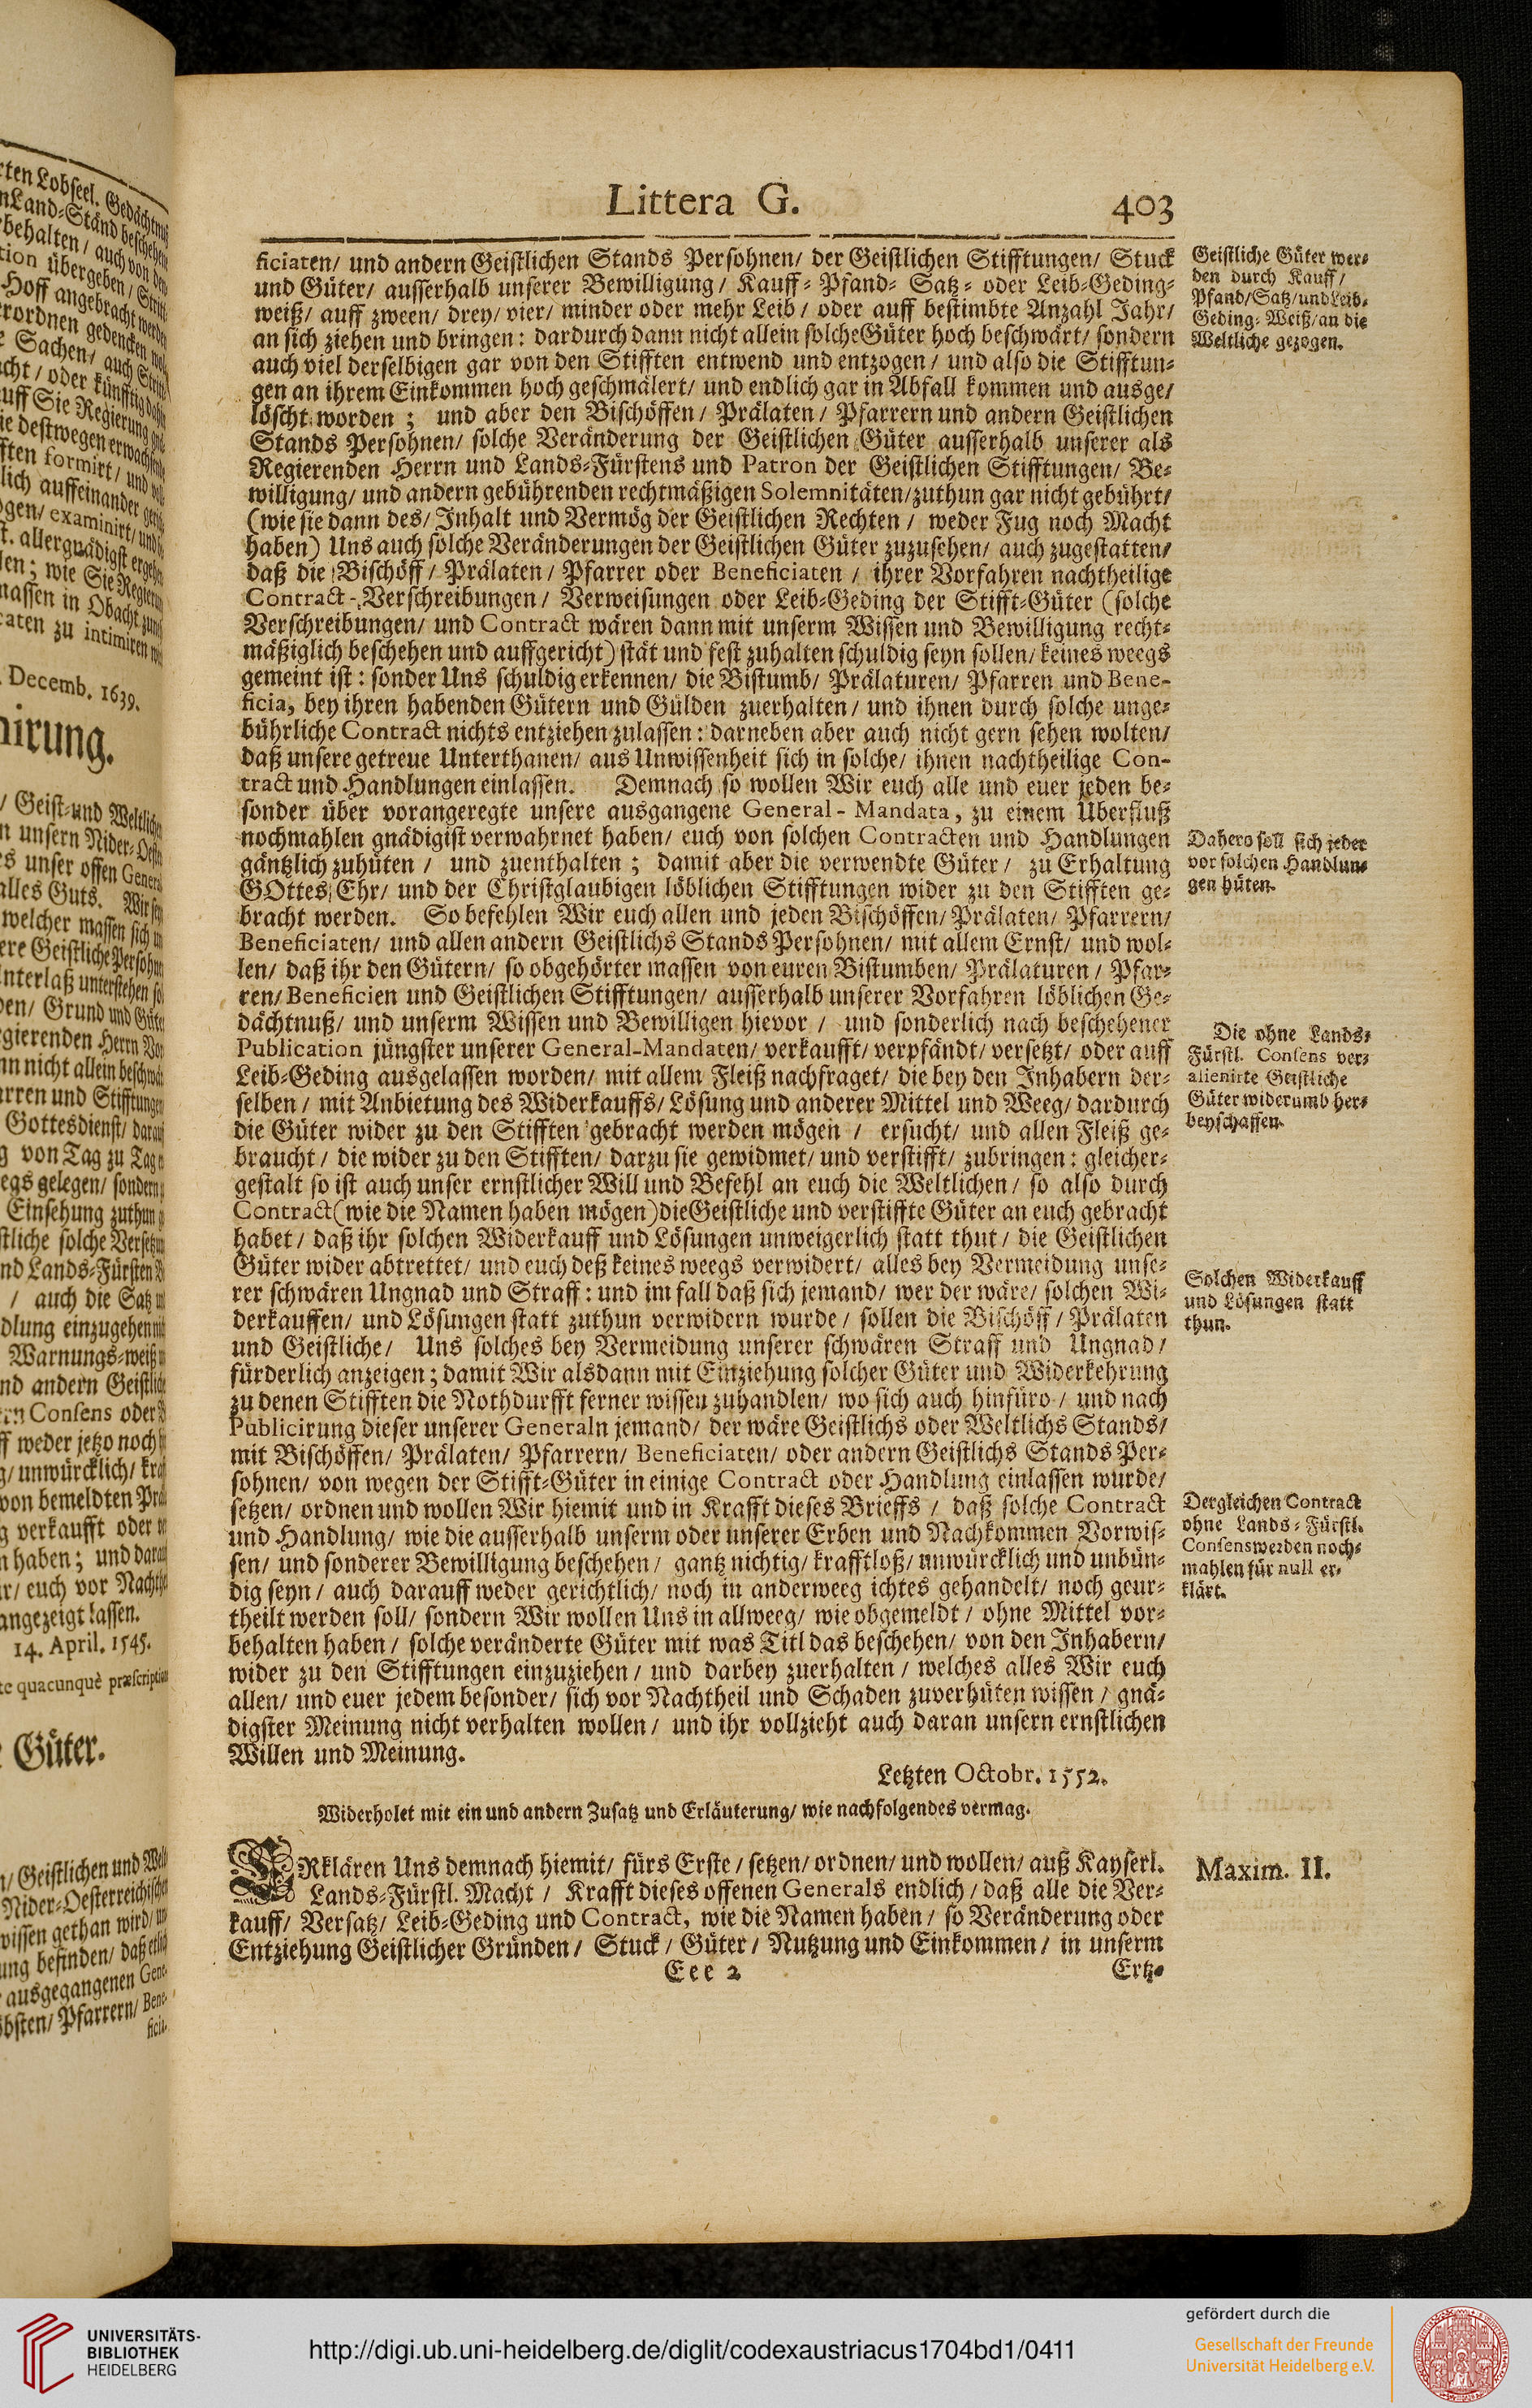 Littera G. 403
ficiaten/ und andern Geistlichen Stands Persohnen/ der Geistlichen Stifftungen/ Stuck
und Güter/ ausserhalb unserer Bewilligung/ Kauff- Pfand- Satz- oder Leib-Geding-
weiß/ auff zween/ drey/ vier/ minder oder mehr Leib/ oder auff bestimbte Anzahl Jahr/
an sich ziehen und bringen: dardurch dann nicht allein solche Güter hoch beschwärt/ sondern
auch viel derselbigen gar von den Stifften entwend und entzogen/ und also die Stifftun-
gen an ihrem Einkommen hoch geschmälert/ und endlich gar in Abfall kommen und ausge/
löscht worden; und aber den Bischöffen/ Prälaten/ Pfarrern und andern Geistlichen
Stands Persohnen/ solche Veränderung der Geistlichen Güter ausserhalb unserer als
Regierenden Herrn und Lands-Fürstens und Patron der Geistlichen Stifftungen/ Be-
willigung/ und andern gebührenden rechtmäßigen Solemnitäten/ zuthun gar nicht gebührt/
(wie sie dann des/ Inhalt und Vermög der Geistlichen Rechten/ weder Fug noch Macht
haben) Uns auch solche Veränderungen der Geistlichen Güter zuzusehen/ auch zugestatten/
daß die Bischöff/ Prälaten/ Pfarrer oder Beneficiaten/ ihrer Vorfahren nachtheilige
Contract-Verschreibungen/ Verweisungen oder Leib-Geding der Stifft-Güter (solche
Verschreibungen/ und Contract wären dann mit unserm Wissen und Bewilligung recht-
mäßiglich beschehen und auffgericht) stät und fest zuhalten schuldig seyn sollen/ keines weegs
gemeint ist: sonder Uns schuldig erkennen/ die Bistumb/ Prälaturen/ Pfarren und Bene-
ficia, bey ihren habenden Gütern und Gülden zuerhalten/ und ihnen durch solche unge-
bührliche Contract nichts entziehen zulassen: darneben aber auch nicht gern sehen wolten/
daß unsere getreue Unterthanen/ aus Unwissenheit sich in solche/ ihnen nachtheilige Con-
tract und Handlungen einlassen. Demnach so wollen Wir euch alle und euer jeden be-
sonder über vorangeregte unsere ausgangene General-Mandata, zu einem Uberfluß
nochmahlen gnädigist verwahrnet haben/ euch von solchen Contracten und Handlungen
gäntzlich zuhüten/ und zuenthalten; damit aber die verwendte Güter/ zu Erhaltung
GOttes Ehr/ und der Christglaubigen löblichen Stifftungen wider zu den Stifften ge-
bracht werden. So befehlen Wir euch allen und jeden Bischöffen/ Prälaten/ Pfarrern/
Beneficiaten/ und allen andern Geistlichs Stands Persohnen/ mit allem Ernst/ und wol-
len/ daß ihr den Gütern/ so obgehörter massen von euren Bistumben/ Prälaturen/ Pfar-
ren/ Beneficien und Geistlichen Stifftungen/ ausserhalb unserer Vorfahren löblichen Ge-
dächtnuß/ und unserm Wissen und Bewilligen hievor/ und sonderlich nach beschehener
Publication jüngster unserer General-Mandaten/ verkaufft/ verpfändt/ versetzt/ oder auff
Leib-Geding ausgelassen worden/ mit allem Fleiß nachfraget/ die bey den Inhabern der-
selben/ mit Anbietung des Widerkauffs/ Lösung und anderer Mittel und Weeg/ dardurch
die Güter wider zu den Stifften gebracht werden mögen/ ersucht/ und allen Fleiß ge-
braucht/ die wider zu den Stifften/ darzu sie gewidmet/ und verstifft/ zubringen: gleicher-
gestalt so ist auch unser ernstlicher Will und Befehl an euch die Weltlichen/ so also durch
Contract (wie die Namen haben mögen) die Geistliche und verstiffte Güter an euch gebracht
habet/ daß ihr solchen Widerkauff und Lösungen unweigerlich statt thut/ die Geistlichen
Güter wider abtrettet/ und euch deß keines weegs verwidert/ alles bey Vermeidung unse-
rer schwären Ungnad und Straff: und im fall daß sich jemand/ wer der wäre/ solchen Wi-
derkauffen/ und Lösungen statt zuthun verwidern wurde/ sollen die Bischöff/ Prälaten
und Geistliche/ Uns solches bey Vermeidung unserer schwären Straff und Ungnad/
fürderlich anzeigen; damit Wir alsdann mit Einziehung solcher Güter und Widerkehrung
zu denen Stifften die Nothdurfft ferner wissen zuhandlen/ wo sich auch hinfüro/ und nach
Publicirung dieser unserer Generaln jemand/ der wäre Geistlichs oder Weltlichs Stands/
mit Bischöffen/ Prälaten/ Pfarrern/ Beneficiaten/ oder andern Geistlichs Stands Per-
sohnen/ von wegen der Stifft-Güter in einige Contract oder Handlung einlassen wurde/
setzen/ ordnen und wollen Wir hiemit und in Krafft dieses Brieffs/ daß solche Contract
und Handlung/ wie die ausserhalb unserm oder unserer Erben und Nachkommen Vorwis-
sen/ und sonderer Bewilligung beschehen/ gantz nichtig/ krafftloß/ unwürcklich und unbün-
dig seyn/ auch darauff weder gerichtlich/ noch in anderweeg ichtes gehandelt/ noch geur-
theilt werden soll/ sondern Wir wollen Uns in allweeg/ wie obgemeldt/ ohne Mittel vor-
behalten haben/ solche veränderte Güter mit was Titl das beschehen/ von den Inhabern/
wider zu den Stifftungen einzuziehen/ und darbey zuerhalten/ welches alles Wir euch
allen/ und euer jedem besonder/ sich vor Nachtheil und Schaden zuverhüten wissen/ gnä-
digster Meinung nicht verhalten wollen/ und ihr vollzieht auch daran unsern ernstlichen
Willen und Meinung.
Letzten Octobr. 1552.
Widerholet mit ein und andern Zusatz und Erläuterung/ wie nachfolgendes vermag.
ERklären Uns demnach hiemit/ fürs Erste/ setzen/ ordnen/ und wollen/ auß Kayserl.
Lands-Fürstl. Macht/ Krafft dieses offenen Generals endlich/ daß alle die Ver-
kauff/ Versatz/ Leib-Geding und Contract, wie die Namen haben/ so Veränderung oder
Entziehung Geistlicher Gründen/ Stuck/ Güter/ Nutzung und Einkommen/ in unserm
Eee 2 Ertz-
Geistliche Güter wer-
den durch Kauff/
Pfand/ Satz/ und Leib-
Geding-Weiß/ an die
Weltliche gezogen.
Dahero soll sich jeder
vor solchen Handlun-
gen hüten.
Die ohne Lands-
Fürstl. Consens ver-
alienirte Geistliche
Güter widerumb her-
beyschaffen.
Solchen Widerkauff
und Lösungen statt
thun.
Dergleichen Contract
ohne Lands-Fürstl.
Consens werden noch-
mahlen für null er-
klärt.
Maxim. II.
Decemb. 1639.
14. April. 1545.
Güter.
UNIVERSITÄTS-
BIBLIOTHEK
HEIDELBERG
http://digi.ub.uni-heidelberg.de/diglit/codexaustriacus1704bd1/0411
gefördert durch die
Gesellschaft der Freunde
Universität Heidelberg e.V.